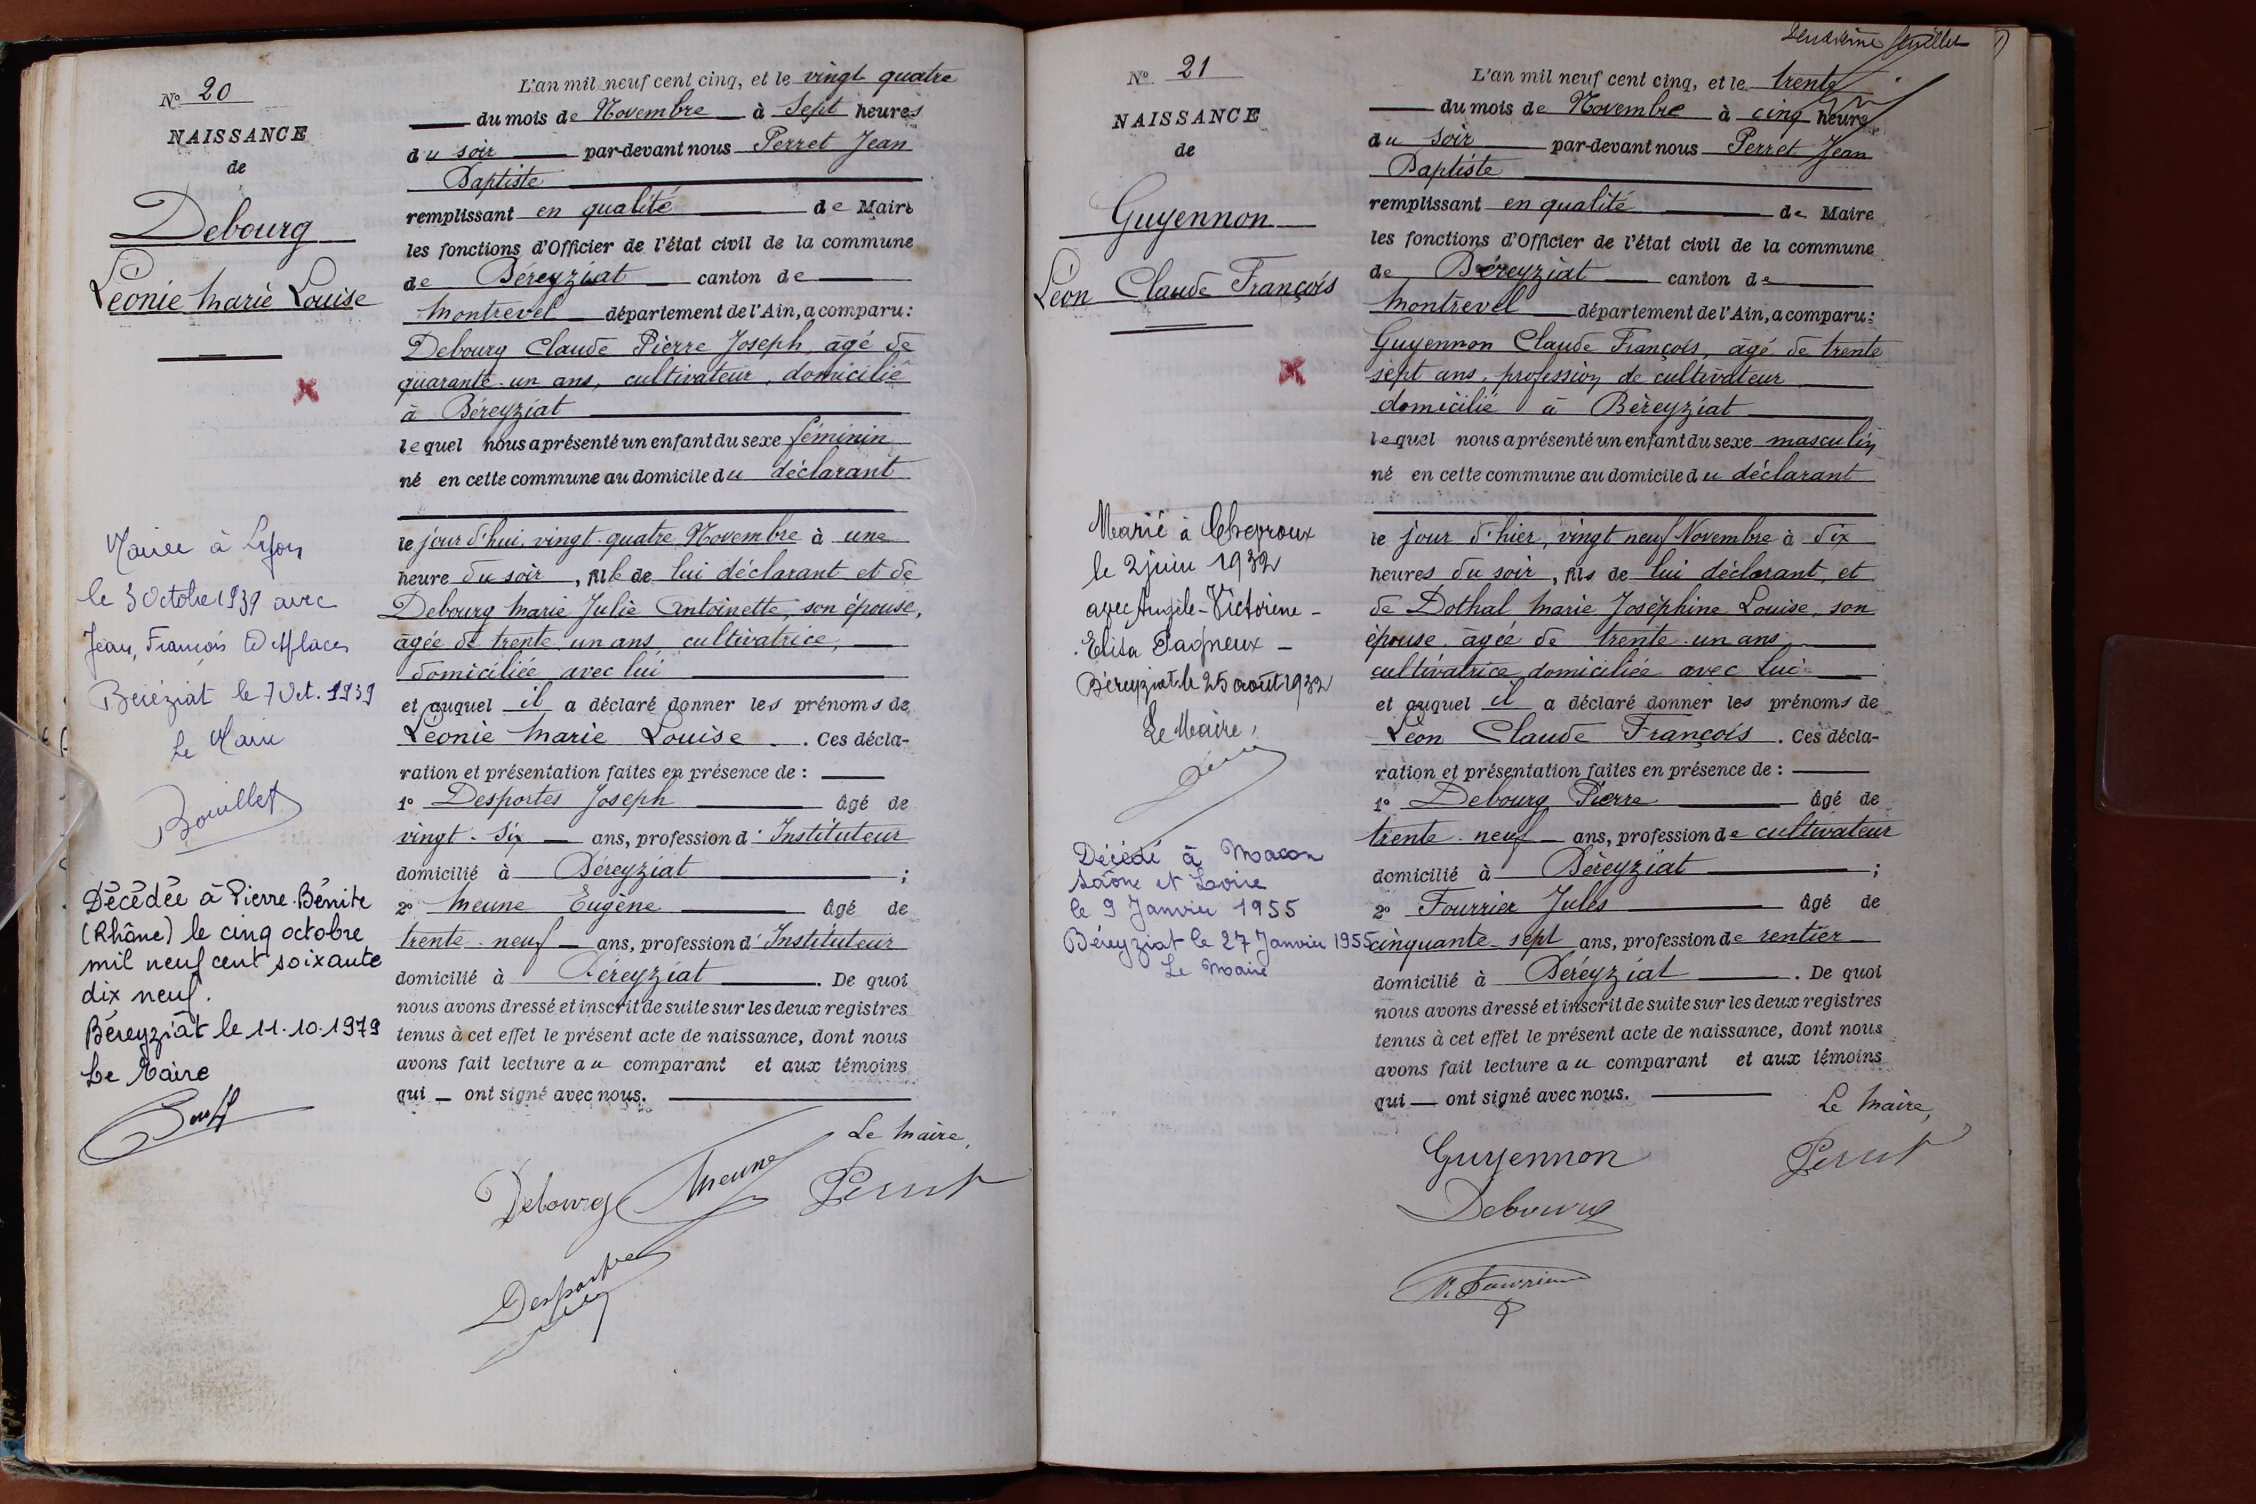 Nº 20
NAISSANCE
de
Debourg
Léonie Marie Louise
Mariée à Lyon
le 3 Octobre 1939 avec
Jean, François
Béréziat le 7 Oct. 1939
Le Maire
Bouillet
Décédée à Pierre-Bénite
(Rhône) le cinq octobre
mil neuf cent soixante
dix neuf.
Béreyziat le 11.10.1979
Le Maire
L'an mil neuf cent cinq, et le vingt quatre
du mois de Novembre à Sept heures
du soir par-devant nous Perret Jean
Baptiste
remplissant en qualité de Maire
les fonctions d'Officier de l'état civil de la commune
de Béreyziat canton de
Montrevel département de l'Ain, a comparu:
Debourg Claude Pierre Joseph, âgé de
quarante-un ans, cultivateur, domicilié
à Béreyziat
lequel nous a présenté un enfant du sexe féminin
né en cette commune au domicile du déclarant
le jour d'hui, vingt-quatre Novembre à une
heure du soir, fille de lui déclarant et de
Debourg Marie Julie Antoinette, son épouse,
âgée de trente un ans, cultivatrice,
domiciliée avec lui
et auquel il a déclaré donner les prénoms de
Léonie Marie Louise. Ces décla-
ration et présentation faites en présence de :
1º Desportes Joseph âgé de
vingt-six ans, profession d'Instituteur
domicilié à Béreyziat ;
2º Meune Eugène âgé de
trente-neuf ans, profession d'Instituteur
domicilié à Béreyziat. De quoi
nous avons dressé et inscrit de suite sur les deux registres
tenus à cet effet le présent acte de naissance, dont nous
avons fait lecture au comparant et aux témoins
qui ont signé avec nous.
Le Maire,
Debourg Meune Perret
Desportes
Deuxième feuillet
Nº 21
NAISSANCE
de
Guyennon
Léon Claude François
Marié à Chevroux
le 2 juin 1932
avec Angèle-Victorine-
Elisa Pagneux
Béreyziat le 25 août 1932
Le Maire,
Décédé à Macon
Saône et Loire
le 9 Janvier 1955
Béreyziat le 27 Janvier 1955
Le Maire
L'an mil neuf cent cinq, et le trente
du mois de Novembre à cinq heures
du soir par-devant nous Perret Jean
Baptiste
remplissant en qualité de Maire
les fonctions d'Officier de l'état civil de la commune
de Béreyziat canton de
Montrevel département de l'Ain, a comparu:
Guyennon Claude François, âgé de trente
sept ans, profession de cultivateur
domicilié à Béreyziat
lequel nous a présenté un enfant du sexe masculin
né en cette commune au domicile du déclarant
le jour d'hier, vingt neuf Novembre à dix
heures du soir, fils de lui déclarant, et
de Dothal Marie Joséphine Louise, son
épouse, âgée de trente-un ans
cultivatrice, domiciliée avec lui
et auquel il a déclaré donner les prénoms de
Léon Claude François. Ces décla-
ration et présentation faites en présence de :
1º Debourg Pierre âgé de
trente-neuf ans, profession de cultivateur
domicilié à Béreyziat ;
2º Fourrier Jules âgé de
cinquante-sept ans, profession de rentier
domicilié à Béreyziat. De quoi
nous avons dressé et inscrit de suite sur les deux registres
tenus à cet effet le présent acte de naissance, dont nous
avons fait lecture au comparant et aux témoins
qui ont signé avec nous.
Le Maire,
Guyennon Perret
Debourg